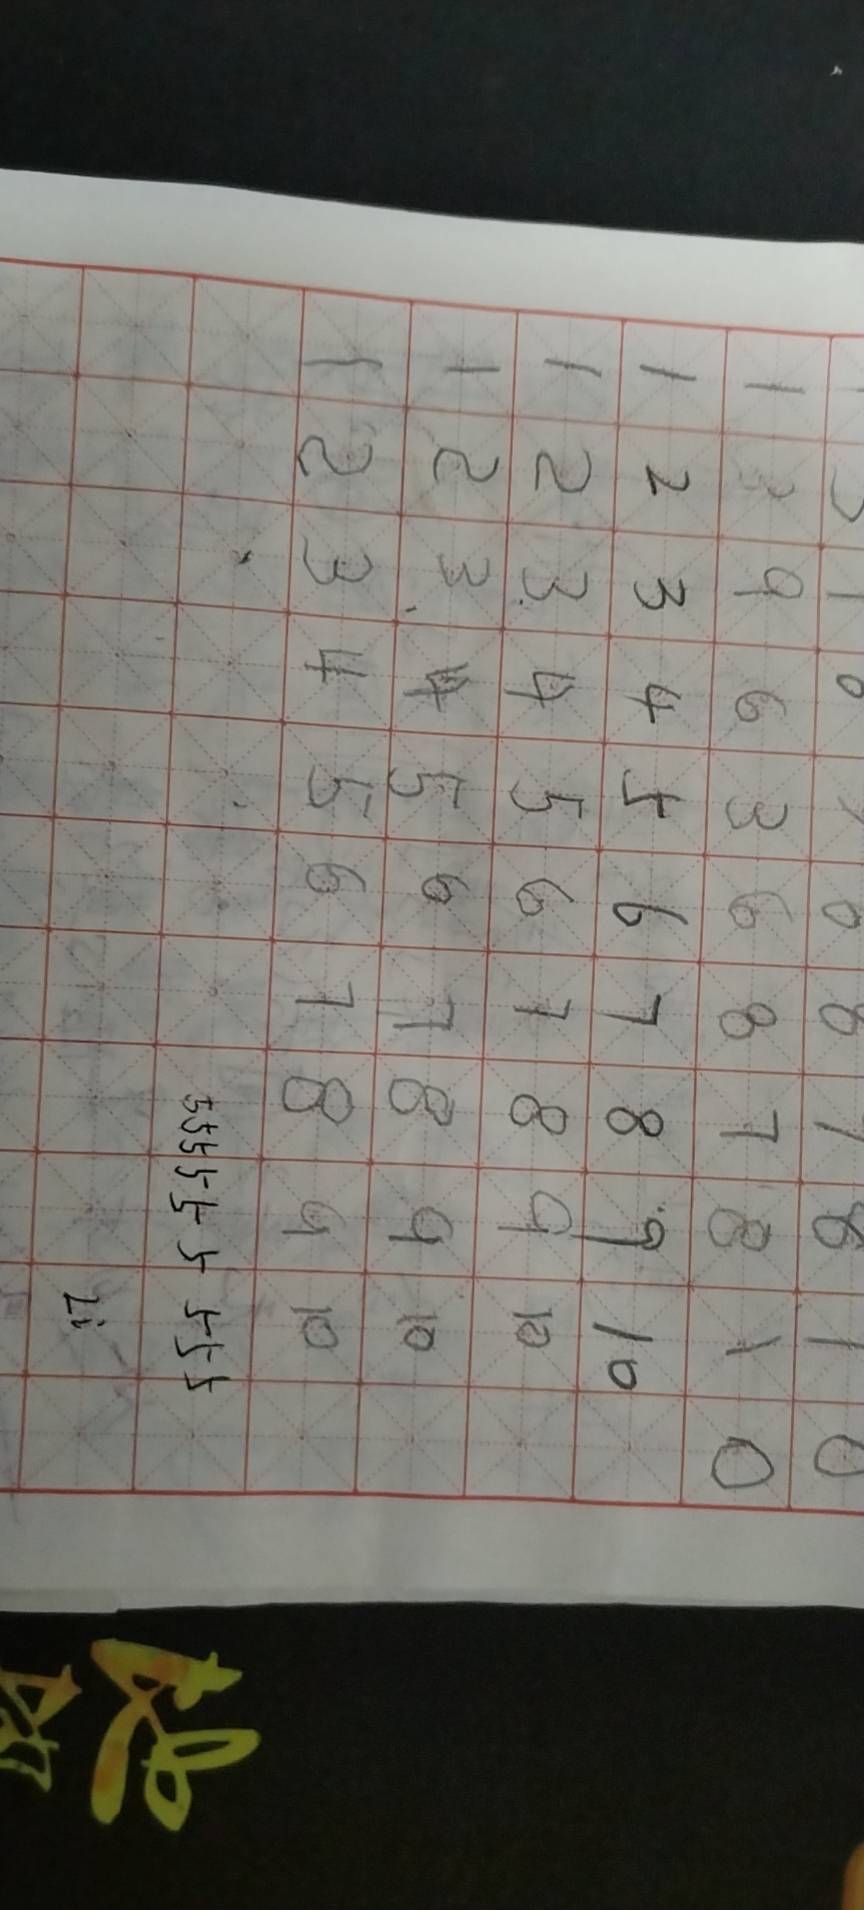 1 0 6 8 7 8 1 0
1 3 9 6 3 6 8 7 8 1 0
1 2 3 4 5 6 7 8 9 10
1 2 3 4 5 6 7 8 9 10
1 2 3 4 5 6 7 8 9 10
1 2 3 4 5 6 7 8 9 10
555 5 5 5 5 5 5
Li